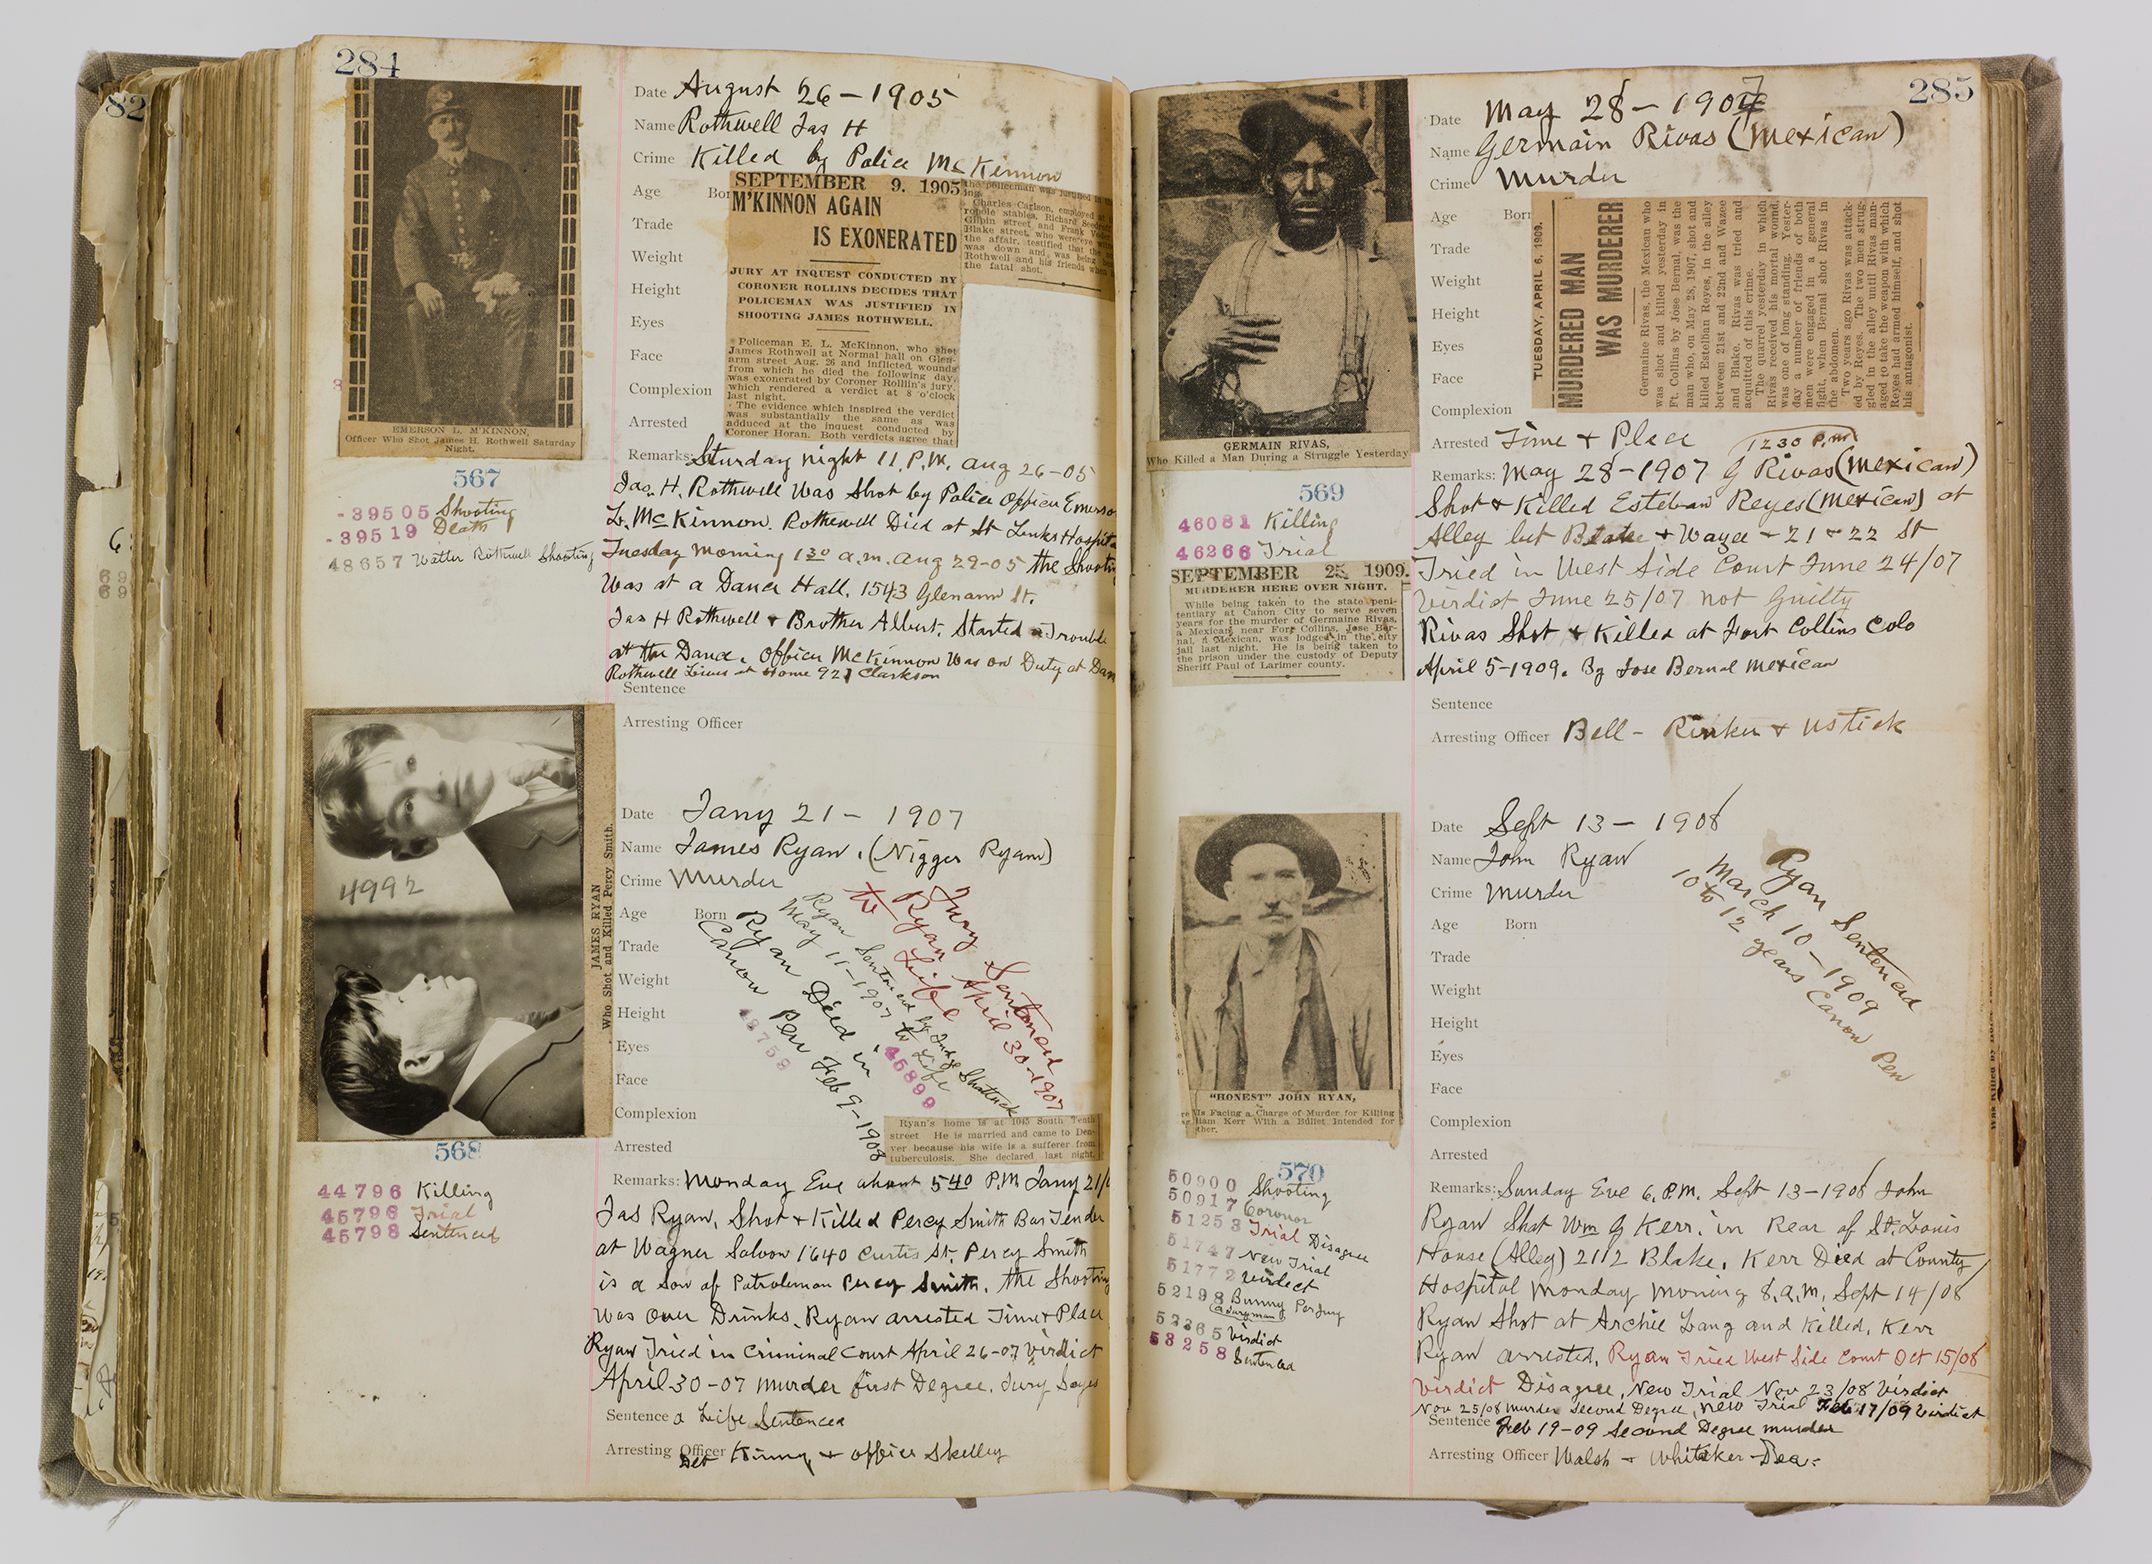 82
284
EMERSON L. M'KINNON,
Officer Who Shot James H. Rothwell Saturday
Night.
567
-39505 Shooting
-39519 Death
48657 Walter Rothwell Shooting
Date August 26 - 1905
Name Rothwell Jas H
Crime Killed by Police McKinnon
Age
Trade
Weight
Height
Eyes
Face
Complexion
Arrested
SEPTEMBER 9. 1905
M'KINNON AGAIN
IS EXONERATED
JURY AT INQUEST CONDUCTED BY
CORONER ROLLINS DECIDES THAT
POLICEMAN WAS JUSTIFIED IN
SHOOTING JAMES ROTHWELL.
Policeman E. L. McKinnon, who shot
James Rothwell at Normal hall on Glen-
arm street Aug. 26 and inflicted wounds
from which he died the following day,
was exonerated by Coroner Rolllin's jury,
which rendered a verdict at 8 o'clock
last night.
The evidence which inspired the verdict
was substantially the same as was
adduced at the inquest conducted by
Coroner Horan. Both verdicts agree that
the policeman was justified in
ing.
Charles Carlson, employed at
ropole stables, Richard
Gilpin street and Frank
Blake street, who were
the affair, testified that the
was down and was being
Rothwell and his friends when
the fatal shot.
Remarks: Saturday night 11 P.M. Aug 26-05
Jas. H. Rothwell Was Shot by Police Officer
L. McKinnon. Rothwell Died at St Lukes
Tuesday Morning 1 30 a.m. Aug 29-05 the
Was at a Dance Hall. 1543 Glenarm St.
Jas H Rothwell & Brother Albert. Started a Trouble
at the Dance. Officer McKinnon Was on Duty at
Rothwell Lives at Home 921 Clarkson
Sentence
Arresting Officer
4992
JAMES RYAN
Who Shot and Killed Percy Smith.
568
44796 Killing
45796 Trial
45798 Sentenced
Date Jany 21 - 1907
Name James Ryan. (Nigger Ryan)
Crime Murder
Age Born
Trade
Weight
Height
Eyes
Face
Complexion
Arrested
Jury Sentenced
Ryan April 30-1907
to Life
Ryan Sentenced by Judge Shattuck
May 11-1907 to Life
45899
Ryan Died in
Canon Pen Feb 9-1908
48759
Ryan's home is at 1045 South Tenth
street He is married and came to Den-
ver because his wife is a sufferer from
tuberculosis. She declared last night
Remarks: Monday Eve about 5 40 P.M Jany 21/
Jas Ryan, Shot & Killed Percy Smith Bar Tender
at Wagner Saloon 1640 Curtis St. Percy Smith
is a Son of Patrolman Percy Smith. the Shooting
Was Over Drinks. Ryan arrested Time & Place
Ryan Tried in Criminal Court April 26-07 Virdict
April 30-07 Murder first Degree. Jury Says
Sentence a Life Sentenced
Arresting Officer Det Kinny & officer Skelley
285
GERMAIN RIVAS,
Who Killed a Man During a Struggle Yesterday
569
46081 Killing
46266 Trial
SEPTEMBER 25, 1909.
MURDERER HERE OVER NIGHT.
While being taken to the state peni-
tentiary at Canon City to serve seven
years for the murder of Germaine Rivas,
a Mexican, near Fort Collins, Jose Ber-
nal, a Mexican, was lodged in the city
jail last night. He is being taken to
the prison under the custody of Deputy
Sheriff Paul of Larimer county.
Date May 28 - 1907
Name Germain Rivas (Mexican)
Crime Murder
Age Born
Trade
Weight
Height
Eyes
Face
Complexion
TUESDAY, APRIL 6, 1909.
MURDERED MAN
WAS MURDERER
Germaine Rivas, the Mexican who
was shot and killed yesterday in
Ft. Collins by Jose Bernal, was the
man who, on May 28, 1907, shot and
killed Estelban Reyes, in the alley
between 21st and 22nd and Wazee
and Blake. Rivas was tried and
acquitted of this crime.
The quarrel yesterday in which
Rivas received his mortal wound,
was one of long standing. Yester-
day a number of friends of both
men were engaged in a general
fight, when Bernal shot Rivas in
the abdomen.
Two years ago Rivas was attack-
ed by Reyes. The two men strug-
gled in the alley until Rivas man-
aged to take the weapon with which
Reyes had armed himself, and shot
his antagonist.
Arrested Time & Place 12 30 P.M.
Remarks: May 28-1907 G Rivas (Mexican)
Shot & Killed Esteban Reyes (Mexican) at
Alley bet Blake & Wazee - 21 & 22 St
Tried in West Side Court June 24/07
Virdict June 25/07 Not Guilty
Rivas Shot & Killed at Fort Collins Colo
April 5-1909. By Jose Bernal Mexican
Sentence
Arresting Officer Bell - Rinker & Ustick
"HONEST" JOHN RYAN,
Is Facing a Charge of Murder for Killing
liam Kerr With a Bullet Intended for
ther.
570
50900 Shooting
50917 Coronor
51253 Trial Disagree
51747 New Trial
51772 Virdict
52198 Bunny Perjury
52265 Virdict
53258 Sentenced
Date Sept 13 - 1908
Name John Ryan
Crime Murder
Age Born
Trade
Weight
Height
Eyes
Face
Complexion
Arrested
Ryan Sentenced
March 10-1909
10 to 12 years Canon Pen
Remarks: Sunday Eve 6. P.M. Sept 13-1908 John
Ryan Shot Wm G Kerr. in Rear of St. Louis
House (Alley) 2112 Blake. Kerr Died at County
Hospital Monday Morning 8. a.m. Sept 14/08
Ryan Shot at Archie Lang and Killed. Kerr
Ryan arrested. Ryan Tried West Side Court Oct 15/08
Virdict Disagree. New Trial Nov 23/08 Virdict
Nov 25/08 Murder Second Degree. New Trial Feb 17/09 Virdict
Sentence Feb 19-09 Second Degree murder
Arresting Officer Walsh & Whitaker - Dec.